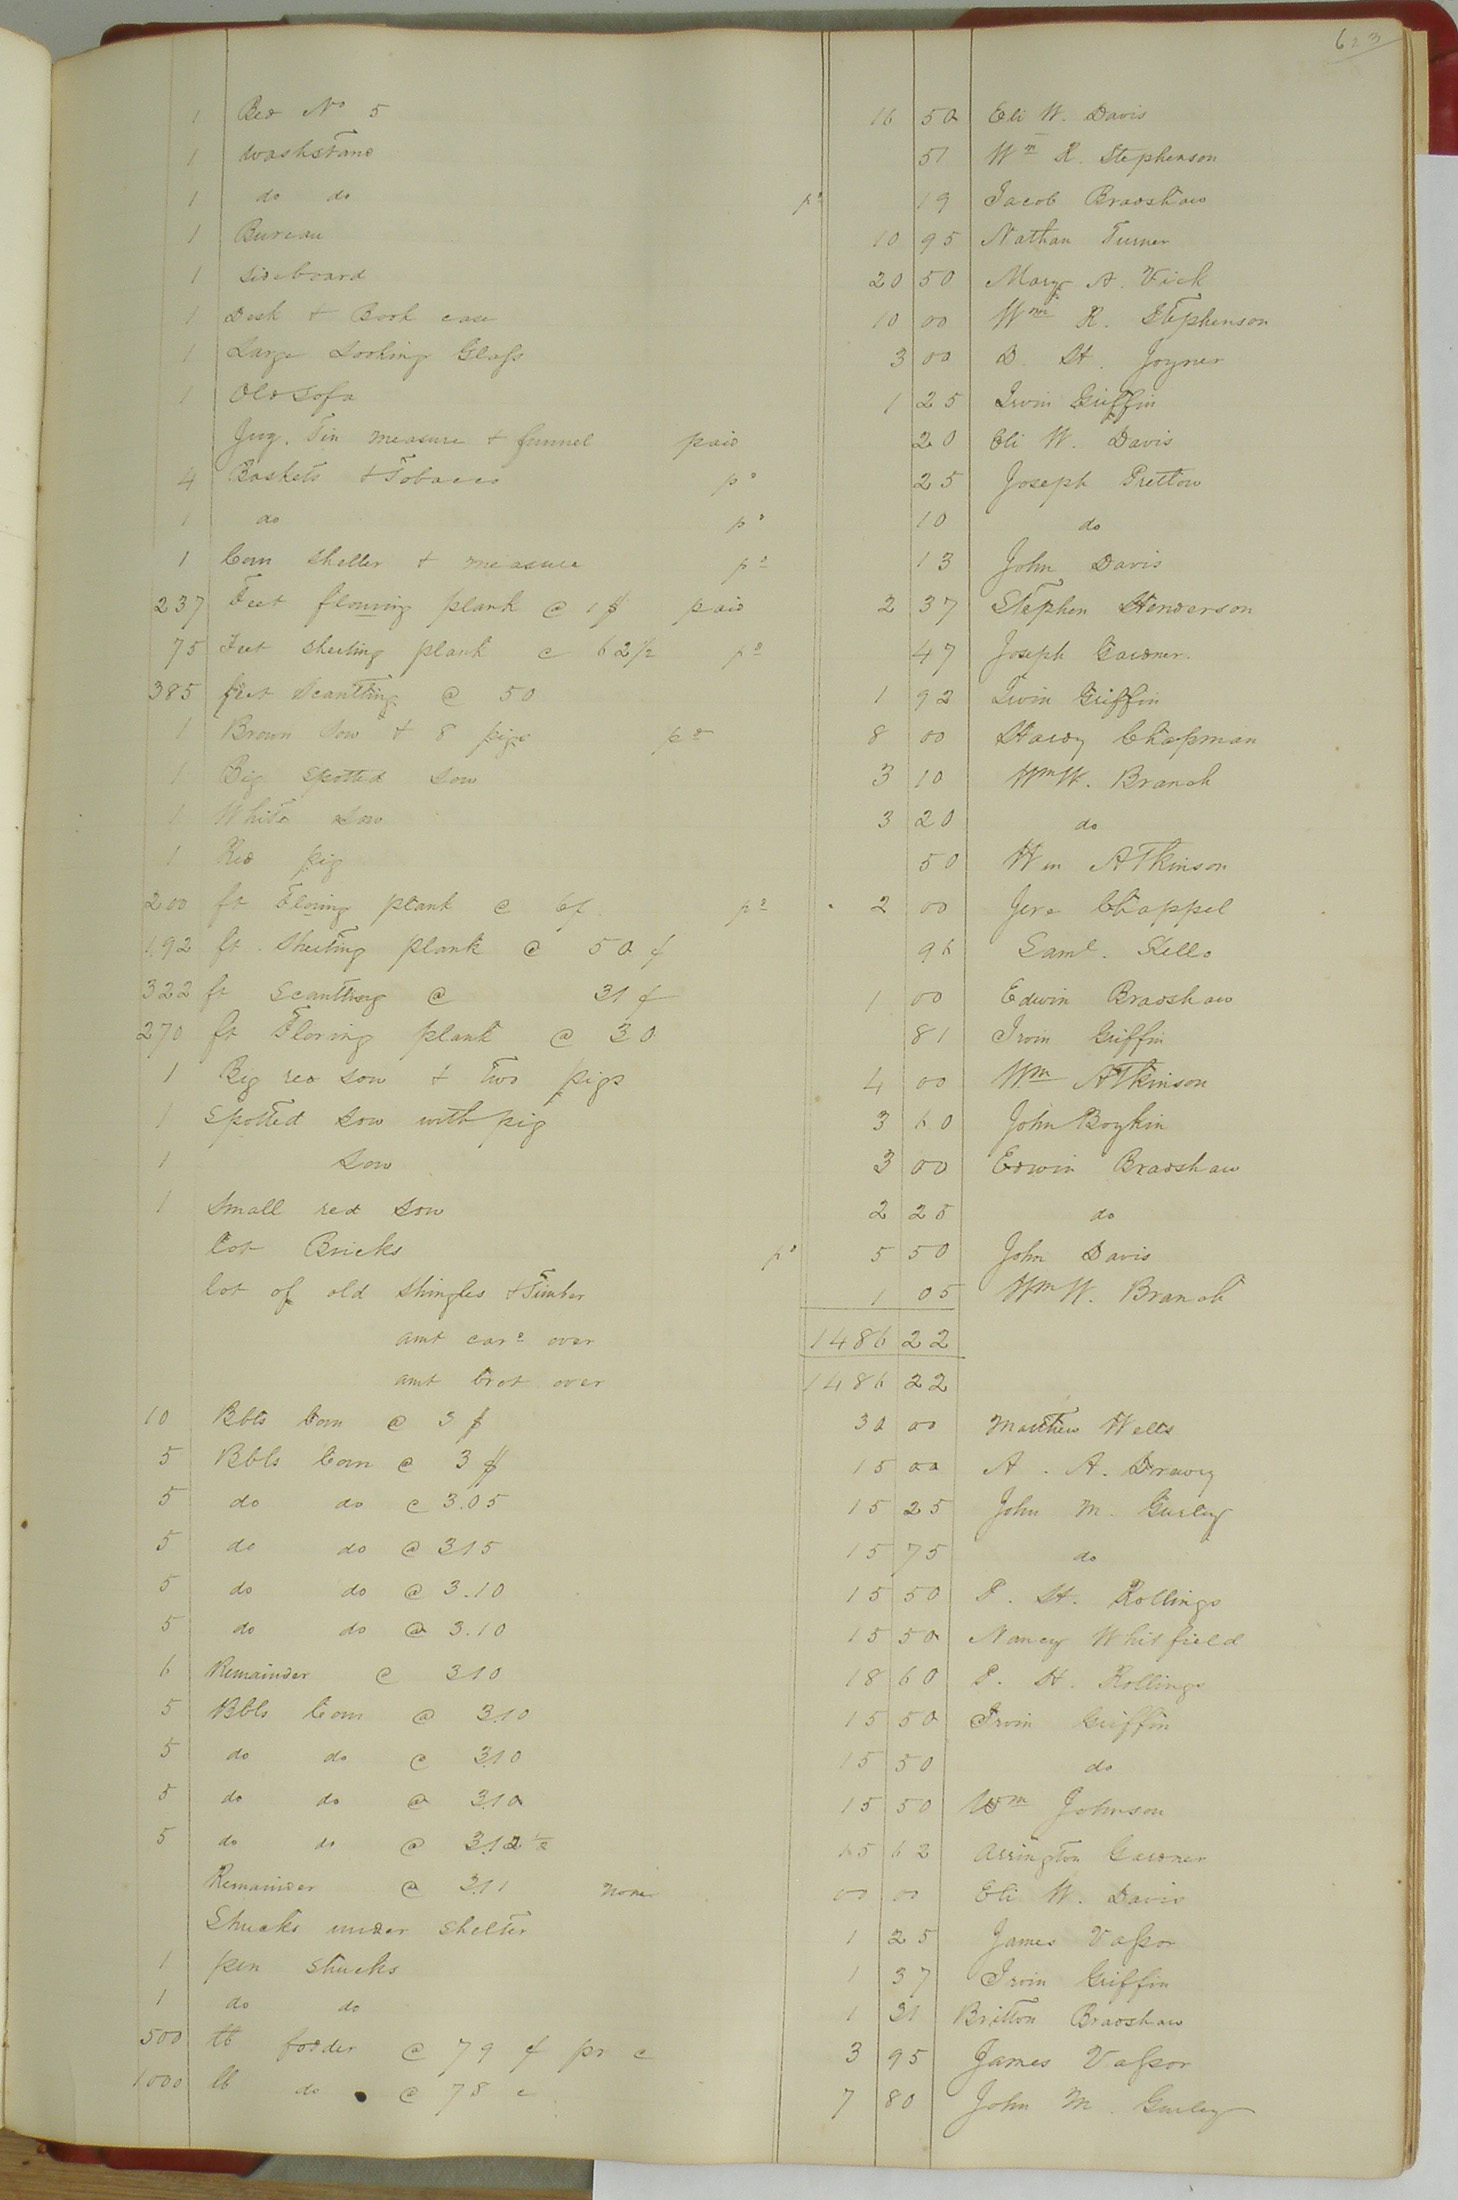 623
1 Bed No 5 16 50 Eli W. Davis
1 washstand 51 Wm R. Stephenson
1 do do pd 19 Jacob Bradshaw
1 Bureau 10 95 Nathan Turner
1 sideboard 20 50 Mary A. Vick
1 Desk & Book case 10 00 Wm R. Stephenson
1 Large Looking Glass 3 00 D. H. Joyner
1 Old sofa 1 25 Irvin Griffin
Jug, Tin measure & funnel paid 20 Eli W. Davis
4 Baskets & Tobacco pd 25 Joseph Pretlow
1 do pd 10 do
1 Corn sheller & measure pd 13 John Davis
237 Feet flowring plank @ 1$ paid 2 37 Stephen Henderson
75 Feet sheeting plank @ 62 1/2 pd 47 Joseph Gardner
385 feet Scantling @ 50 1 92 Irvin Griffin
1 Brown sow & 8 pigs pd 8 00 Hardy Chapman
1 Big spotted sow 3 10 Wm W. Branch
1 White sow 3 20 do
1 Red pig 50 Wm Atkinson
200 ft Flowing plank @ pd 2 00 Jere Chappel
192 ft. Sheeting plank @ 50 ¢ 96 Saml. Kello
322 ft Scantling @ 31 ¢ 1 00 Edwin Bradshaw
270 ft Floring plank @ 30 81 Irvin Griffin
1 Big red sow & two pigs 4 00 Wm Atkinson
1 Spotted sow with pig 3 60 John Boykin
1 sow 3 00 Edwin Bradshaw
1 Small red sow 2 25 do
lot Bricks pd 5 50 John Davis
lot of old shingles & Timber 1 05 Wm W. Branch
amt card over 1486 22
amt brot over 1486 22
10 Bbls Corn @ 3 $ 30 00 Matthew Wells
5 Bbls Corn @ 3 $ 15 00 A. A. Drewry
5 do do @ 3.05 15 25 John M. Gurley
5 do do @ 315 15 75 do
5 do do @ 3.10 15 50 P. H. Rollings
5 do do @ 3.10 15 50 Nancy Whitfield
6 Remainder @ 310 18 60 P. H. Rollings
5 Bbls Corn @ 3.10 15 50 Irvin Griffin
5 do do @ 3.10 15 50 do
5 do do @ 3.10 15 50 Wm Johnson
5 do do @ 3.12 1/2 15 62 Arrington Gardner
Remainder @ 3.11 none 00 00 Eli W. Davis
Shucks under shelter 1 25 James Vasser
1 pen shucks 1 37 Irvin Griffin
1 do do 1 31 Britton Bradshaw
500 lb fodder @ 79 ¢ pr c 3 95 James Vasser
1000 lb do @ 78 c 7 80 John M. Gurley